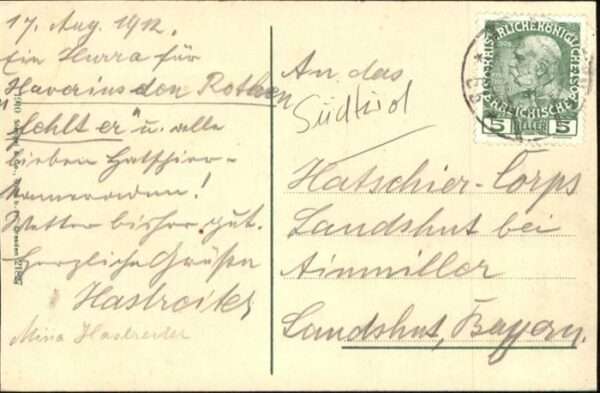 17. Aug. 1912.
Ein Hurra für
Xaverius den Rothen
"fehlt er" u. alle
lieben Hatschier-
Kameraden!
Wetter bisher gut.
Herzliche Grüße
Hastreiter
Mina Hastreiter
An das
Südtirol
Hatschier-Corps
Landshut bei
Ainmiller
Landshut, Bayern.
KAISERLICHE KÖNIGLICHE
ÖSTERREICHISCHE
5 HELLER 5